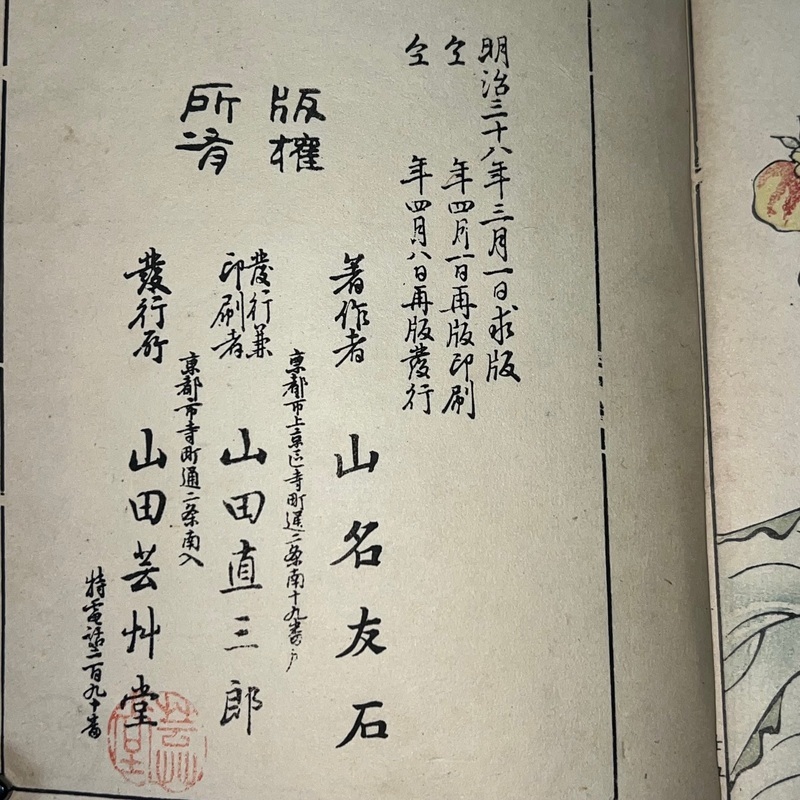 明治三十八年三月一日求版
仝 年四月一日再版印刷
仝 年四月八日再版發行
版權
所有
著作者 山名友石
京都市上京区寺町通二条南十九番戸
發行兼
印刷者 山田直三郎
京都市寺町通二条南入
發行所 山田芸艸堂
特電話二百九十番
芸
堂